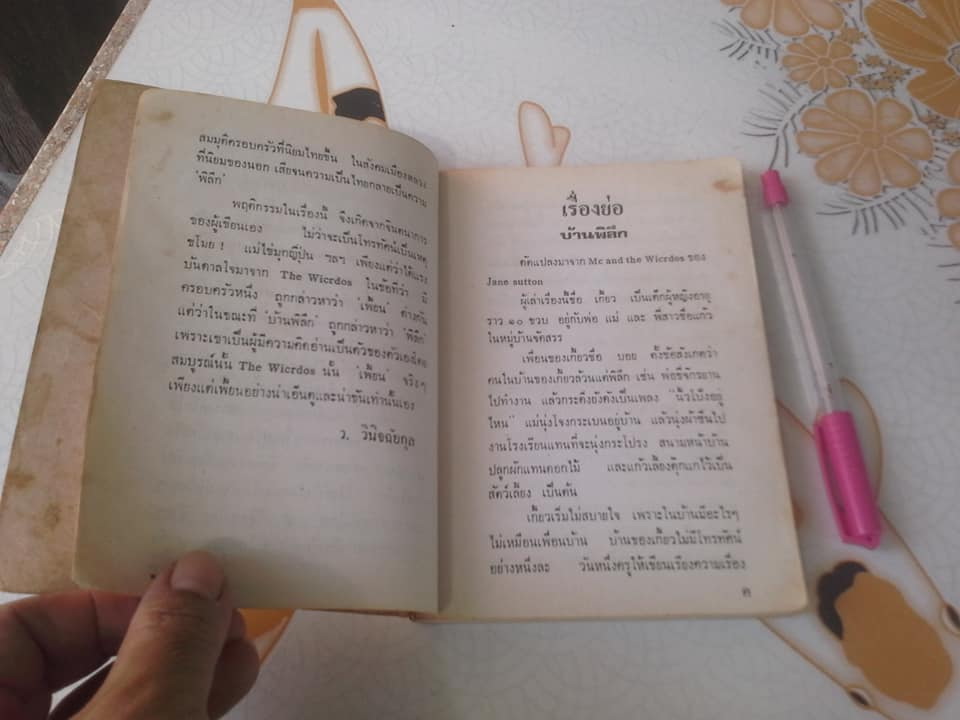 สมมุติครอบครัวที่นิยมไทยขึ้น ในสังคมเมืองหลวง
ที่นิยมของนอก เสียจนความเป็นไทยกลายเป็นความ
'พิลึก'
พฤติกรรมในเรื่องนี้ จึงเกิดจากจินตนาการ
ของผู้เขียนเอง ไม่ว่าจะเป็นโทรทัศน์เป็นเหตุ
ขโมย ! แม่ไข่มุกญี่ปุ่น ฯลฯ เพียงแต่ว่าได้แรง
บันดาลใจมาจาก The Wierdos ในข้อที่ว่า มี
ครอบครัวหนึ่ง ถูกกล่าวหาว่า 'เพี้ยน' ต่างกัน
แต่ว่าในขณะที่ 'บ้านพิลึก' ถูกกล่าวหาว่า 'พิลึก'
เพราะเขาเป็นผู้มีความคิดอ่านเป็นตัวของตัวเอง
สมบูรณ์นั้น The Wierdos นั้น 'เพี้ยน' จริงๆ
เพียงแต่เพี้ยนอย่างน่าเอ็นดูและน่าขันเท่านั้นเอง
ว. วินิจฉัยกุล
เรื่องย่อ
บ้านพิลึก
ดัดแปลงมาจาก Me and the Wierdos ของ
Jane sutton
ผู้เล่าเรื่องนี้ชื่อ เกี้ยว เป็นเด็กผู้หญิงอายุ
ราว ๑๐ ขวบ อยู่กับพ่อ แม่ และ พี่สาวชื่อแก้ว
ในหมู่บ้านจัดสรร
เพื่อนของเกี้ยวชื่อ บอย ตั้งข้อสังเกตว่า
คนในบ้านของเกี้ยวล้วนแต่พิลึก เช่น พ่อขี่จักรยาน
ไปทำงาน แล้วกระดิ่งยังดังเป็นเพลง "นิ้วโป้งอยู่
ไหน" แม่นุ่งโจงกระเบนอยู่บ้าน แล้วนุ่งผ้าซิ่นไป
งานโรงเรียนแทนที่จะนุ่งกระโปรง สนามหน้าบ้าน
ปลูกผักแทนดอกไม้ และแก้วเลี้ยงตุ๊กแกไว้เป็น
สัตว์เลี้ยง เป็นต้น
เกี้ยวเริ่มไม่สบายใจ เพราะในบ้านมีอะไรๆ
ไม่เหมือนเพื่อนบ้าน บ้านของเกี้ยวไม่มีโทรทัศน์
อย่างหนึ่งละ วันหนึ่งครูให้เขียนเรียงความเรื่อง